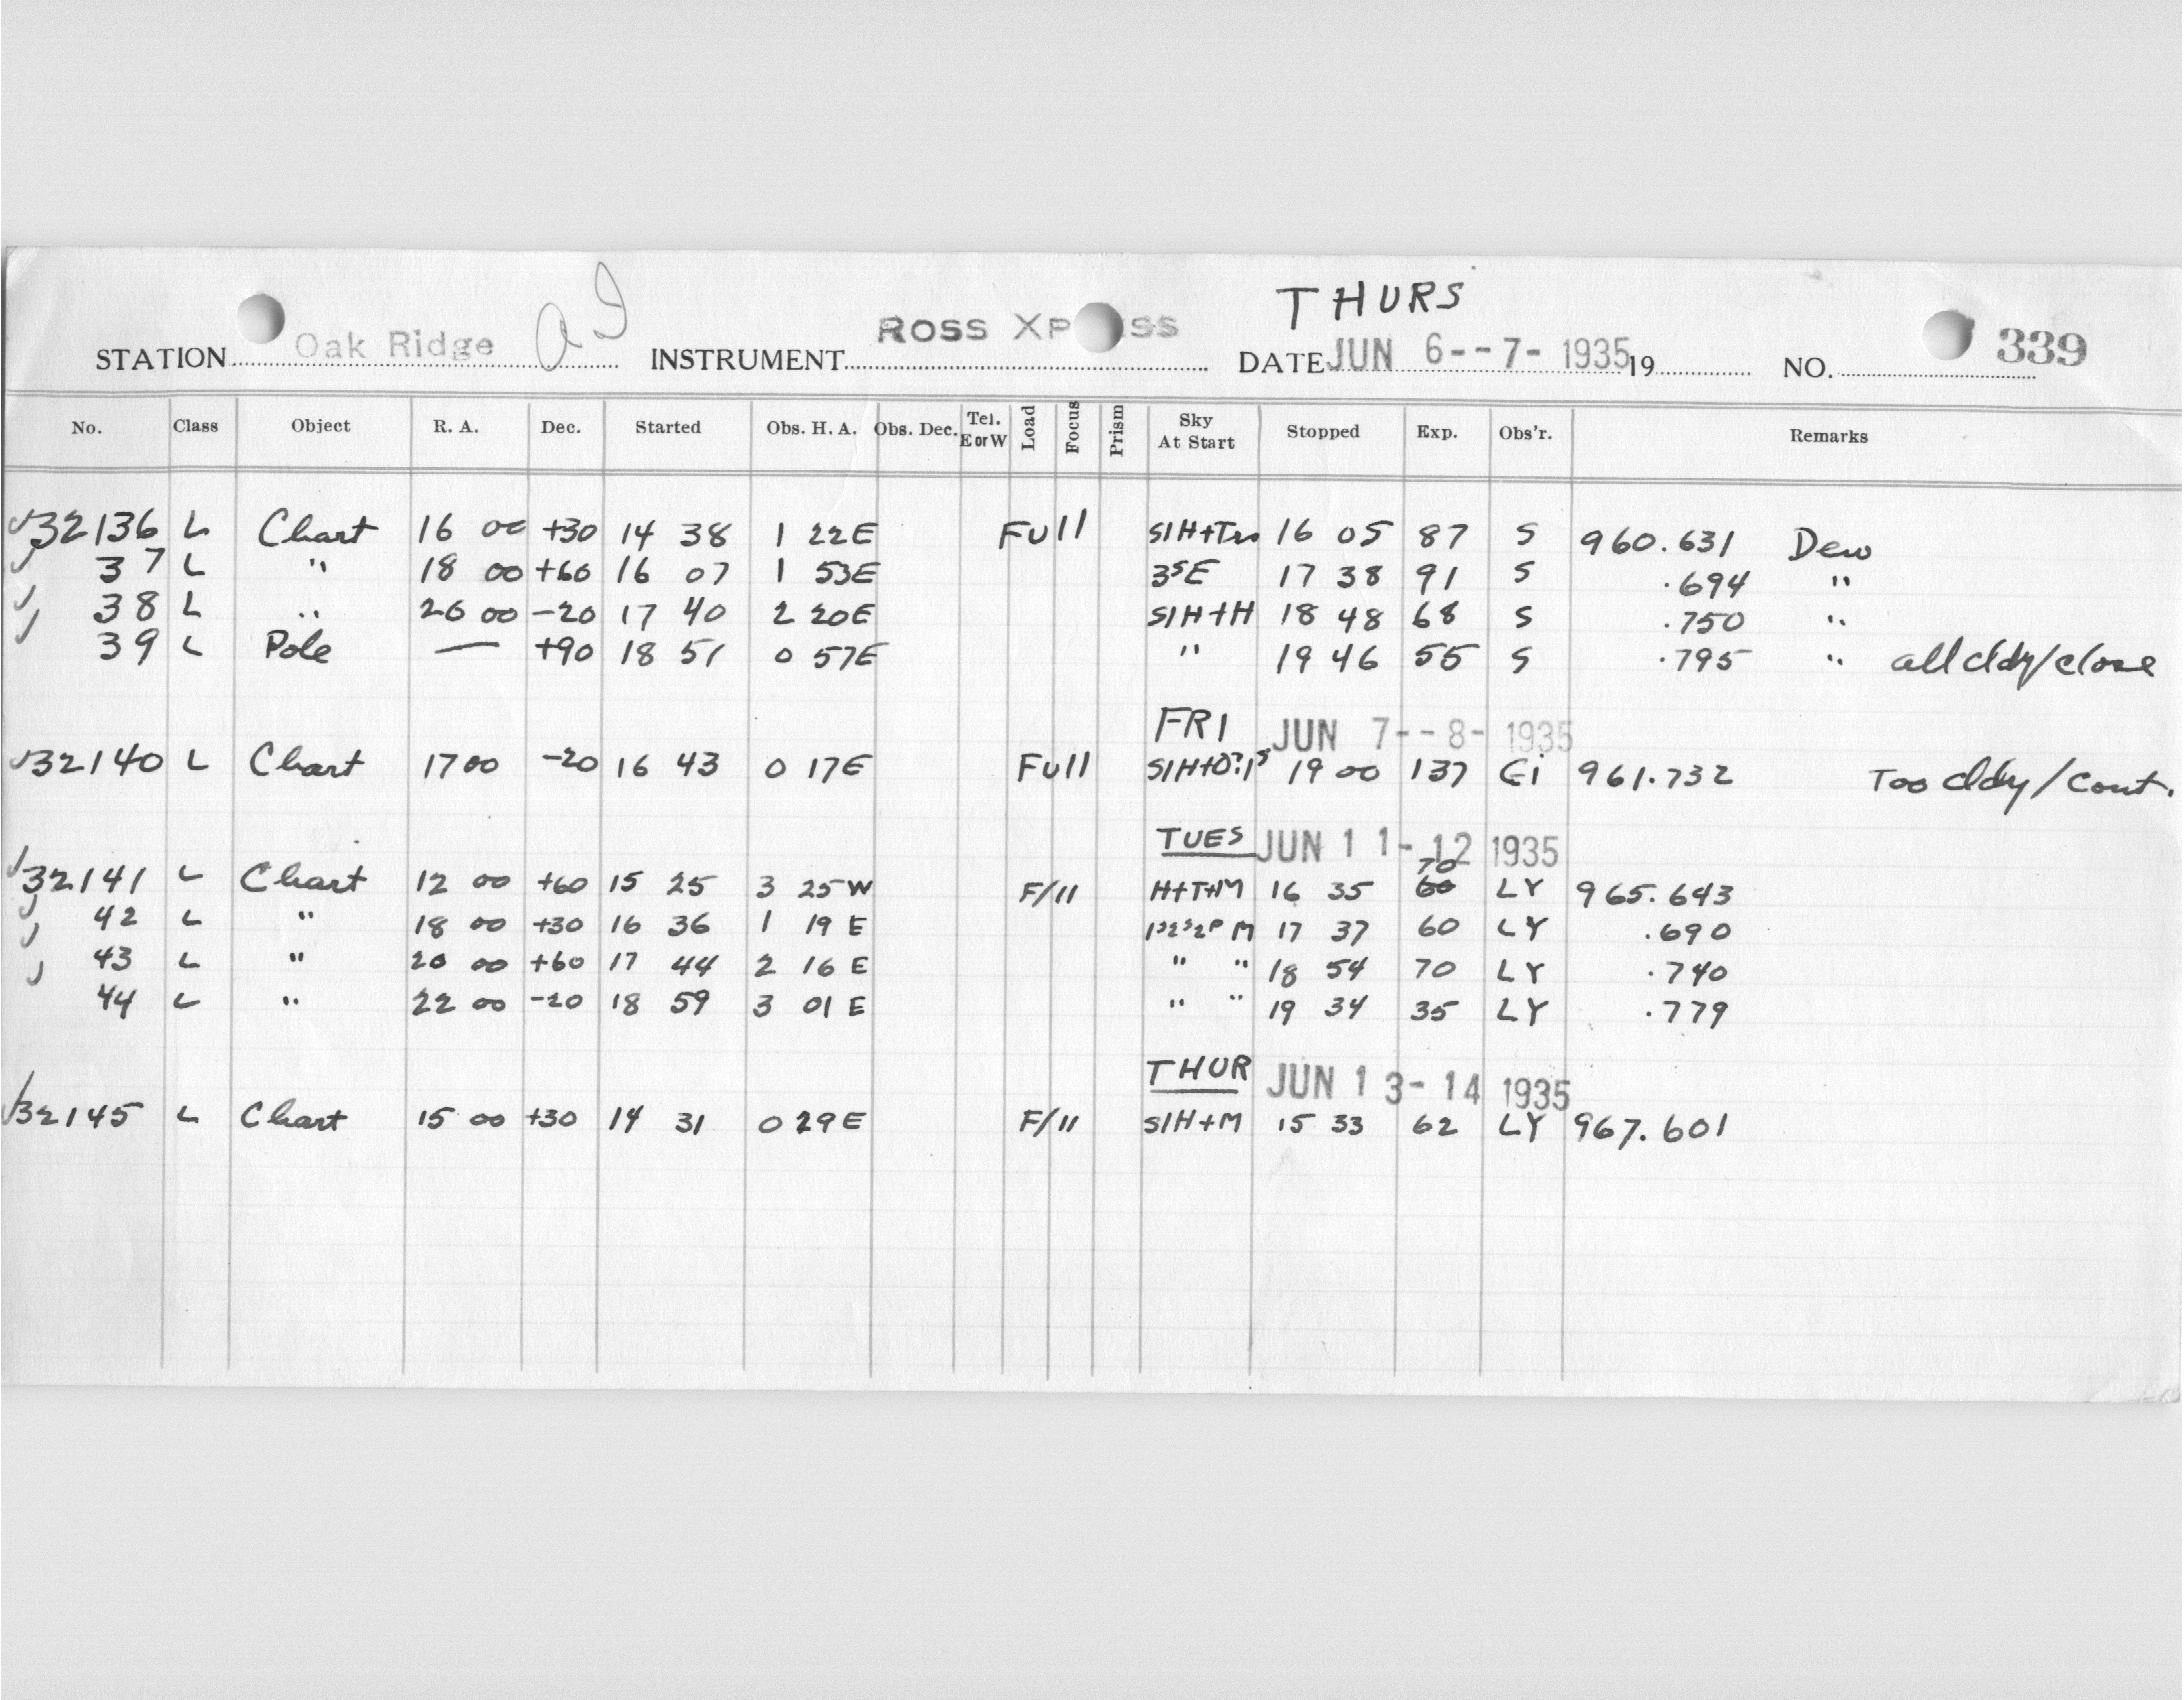 THURS
STATION Oak Ridge INSTRUMENT ROSS DATE JUN 6--7- 1935 19 NO. 339
No. Class Object R. A. Dec. Started Obs. H. A. Obs. Dec. Tel. E or W Load Focus Prism Sky At Start Stopped Exp. Obs'r. Remarks
32136 L Chart 16 00 +30 14 38 1 22E Full 16 05 87 S 960.631 Dew
37 L " 18 00 +60 16 07 1 53E 3SE 17 38 91 S .694 "
38 L " 20 00 -20 17 40 2 20E S/H+H 18 48 68 S .750 "
39 L Pole — +90 18 51 0 57E " 19 46 55 S .795 " all cldy/close
FRI JUN 7--8- 1935
32140 L Chart 17 00 -20 16 43 0 17E Full 19 00 137 Gi 961.732 Too cldy/cont.
TUES JUN 11-12 1935
32141 L Chart 12 00 +60 15 25 3 25W F/11 H+T+M 16 35 70 LY 965.643
42 L " 18 00 +30 16 36 1 19E M 17 37 60 LY .690
43 L " 20 00 +60 17 44 2 16E " " 18 54 70 LY .740
44 L " 22 00 -20 18 59 3 01E " " 19 34 35 LY .779
THUR JUN 13-14 1935
32145 L Chart 15 00 +30 14 31 0 29E F/11 S/H+M 15 33 62 LY 967.601